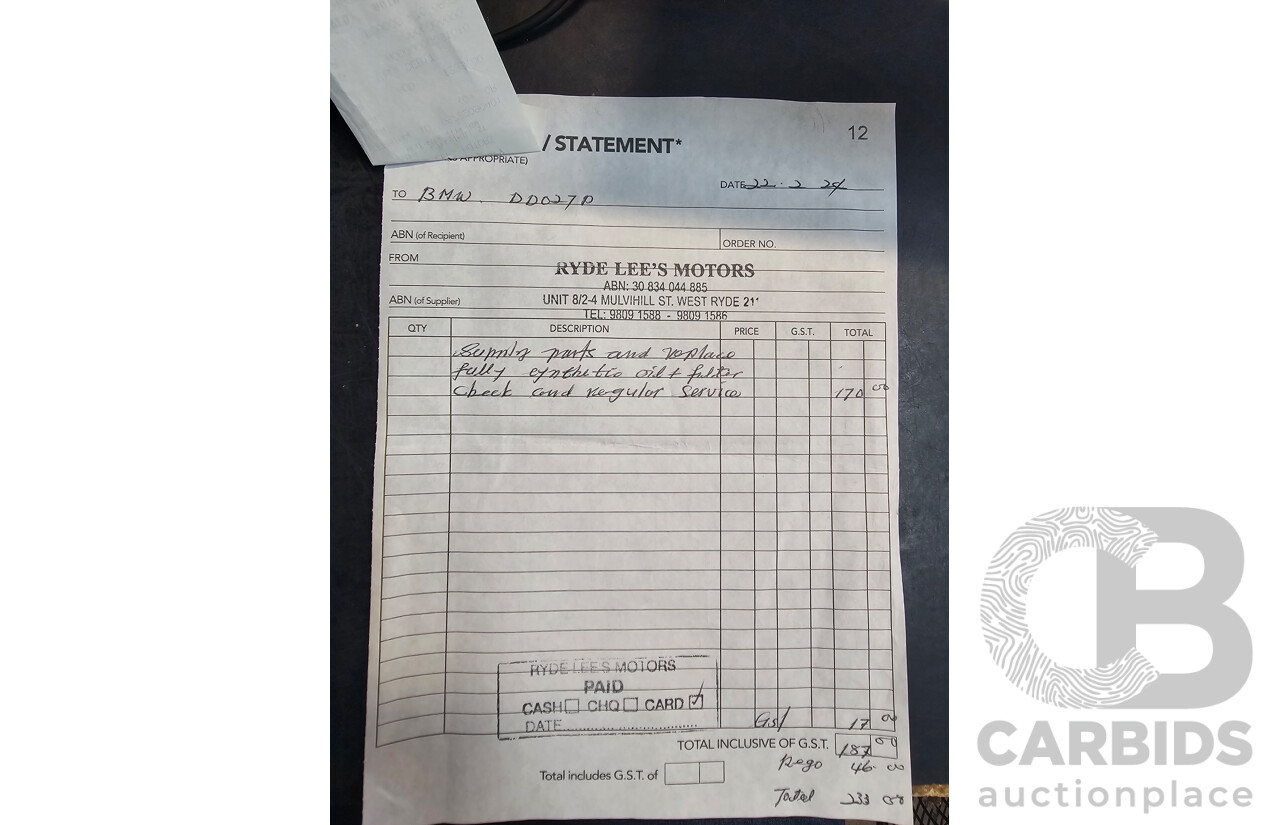 12
/ STATEMENT*
APPROPRIATE)
DATE 22. 2 24
TO BMW. DD027P
ABN (of Recipient)
ORDER NO.
FROM
RYDE LEE'S MOTORS
ABN: 30 834 044 885
ABN (of Supplier)
UNIT 8/2-4 MULVIHILL ST. WEST RYDE 21
TEL: 9809 1588 - 9809 1586
QTY DESCRIPTION PRICE G.S.T. TOTAL
Supply parts and replace
fully synthetic oil + filter
Check and regular service 170 00
RYDE LEE'S MOTORS
PAID
CASH CHQ CARD
DATE
Gst 17 00
TOTAL INCLUSIVE OF G.S.T. 187 00
Rego 46. 00
Total includes G.S.T. of
Total 233 00
CB
CARBIDS
auctionplace